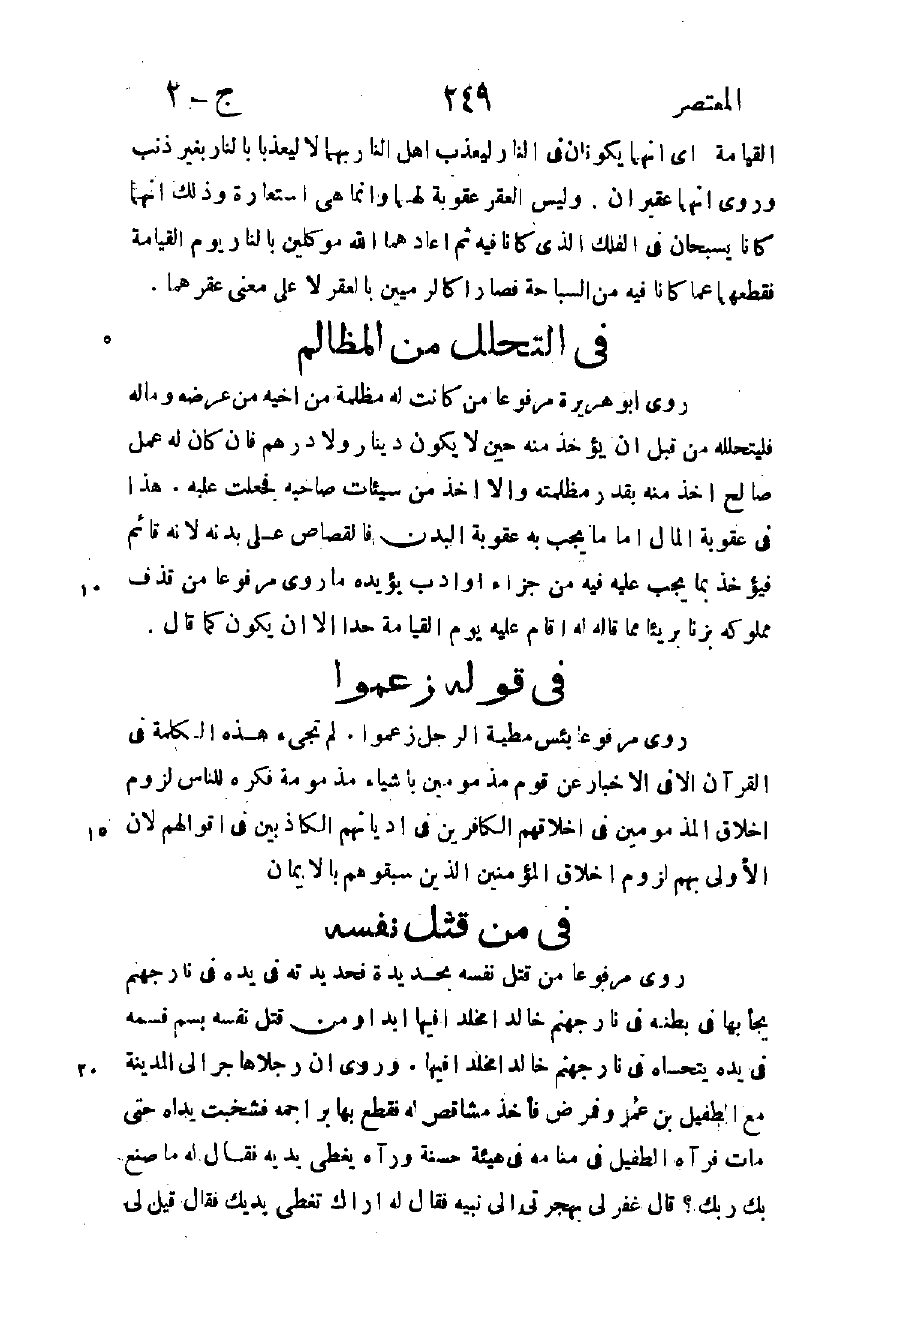 المعتصر ٢٤٩ ج – ٢
القيامة اى انهما يكونان فى النار ليعذب اهل النار بهما لا ليعذبا بالنار بغير ذنب
وروى انهما عقيران . وليس العقر عقوبة لهما وانما هى استعارة وذلك انهما
كانا يسبحان فى الفلك الذى كانا فيه ثم اعادهما الله موكلين بالنار يوم القيامة
فقطعهما عما كانا فيه من السباحة فصارا كالزمنين بالعقر لا على معنى عقرهما .
فى التحلل من المظالم ٥
روى ابو هريرة مرفوعا من كانت له مظلمة من اخيه من عرضه وماله
فليتحلله من قبل ان يؤخذ منه حين لا يكون دينار ولا درهم فان كان له عمل
صالح اخذ منه بقدر مظلمته والا اخذ من سيئات صاحبه فجعلت عليه . هذا
فى عقوبة المال اما ما يجب به عقوبة البدن فالقصاص على بدنه لانه قائم
فيؤخذ بما يجب عليه فيه من جزاء اوادب يؤيده ماروى مرفوعا من قذف ١٠
مملوكه بزنا بريئا مما قاله له اقام عليه يوم القيامة حدا الا ان يكون كما قال .
فى قوله زعموا
روى مرفوعا بئس مطية الرجل زعموا . لم تجىء هذه الكلمة فى
القرآن الا فى الاخبار عن قوم مذمومين باشياء مذمومة فكره للناس لزوم
اخلاق المذمومين فى اخلاقهم الكافرين فى اديانهم الكاذبين فى اقوالهم لان ١٥
الأولى بهم لزوم اخلاق المؤمنين الذين سبقوهم بالايمان
فى من قتل نفسه
روى مرفوعا من قتل نفسه بحديدة فحديدته فى يده فى نار جهنم
يجأ بها فى بطنه فى نار جهنم خالدا مخلدا فيها ابدا ومن قتل نفسه بسم فسمه
فى يده يتحساه فى نار جهنم خالدا مخلدا فيها . وروى ان رجلا هاجر الى المدينة ٢٠
مع الطفيل بن عمر وفمرض فأخذ مشاقص له فقطع بها براجمه فشخبت يداه حتى
مات فرآه الطفيل فى منامه فى هيئة حسنة ورآه يغطى يديه فقال له ما صنع
بك ربك ؟ قال غفر لى بهجرتى الى نبيه فقال له اراك تغطى يديك فقال قيل لى